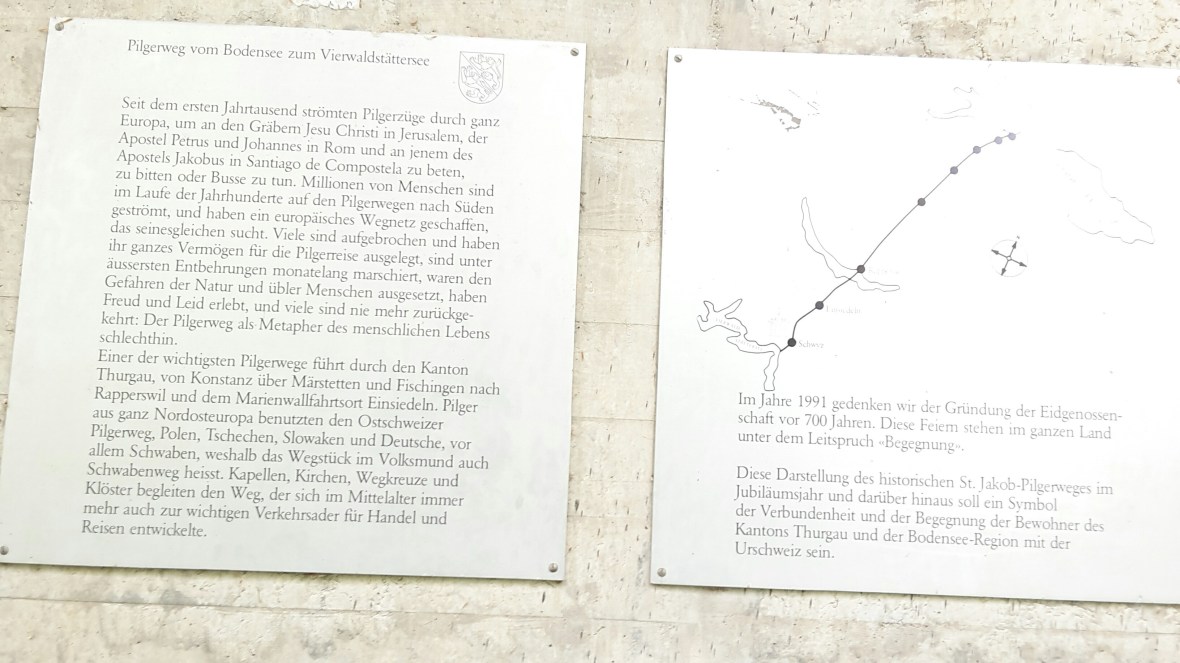 Pilgerweg vom Bodensee zum Vierwaldstättersee
Seit dem ersten Jahrtausend strömten Pilgerzüge durch ganz
Europa, um an den Gräbern Jesu Christi in Jerusalem, der
Apostel Petrus und Johannes in Rom und an jenem des
Apostels Jakobus in Santiago de Compostela zu beten,
zu bitten oder Busse zu tun. Millionen von Menschen sind
im Laufe der Jahrhunderte auf den Pilgerwegen nach Süden
geströmt, und haben ein europäisches Wegnetz geschaffen,
das seinesgleichen sucht. Viele sind aufgebrochen und haben
ihr ganzes Vermögen für die Pilgerreise ausgelegt, sind unter
äussersten Entbehrungen monatelang marschiert, waren den
Gefahren der Natur und übler Menschen ausgesetzt, haben
Freud und Leid erlebt, und viele sind nie mehr zurückge-
kehrt: Der Pilgerweg als Metapher des menschlichen Lebens
schlechthin.
Einer der wichtigsten Pilgerwege führt durch den Kanton
Thurgau, von Konstanz über Märstetten und Fischingen nach
Rapperswil und dem Marienwallfahrtsort Einsiedeln. Pilger
aus ganz Nordosteuropa benutzten den Ostschweizer
Pilgerweg, Polen, Tschechen, Slowaken und Deutsche, vor
allem Schwaben, weshalb das Wegstück im Volksmund auch
Schwabenweg heisst. Kapellen, Kirchen, Wegkreuze und
Klöster begleiten den Weg, der sich im Mittelalter immer
mehr auch zur wichtigen Verkehrsader für Handel und
Reisen entwickelte.
Schwyz
Im Jahre 1991 gedenken wir der Gründung der Eidgenossen-
schaft vor 700 Jahren. Diese Feiern stehen im ganzen Land
unter dem Leitspruch «Begegnung».
Diese Darstellung des historischen St. Jakob-Pilgerweges im
Jubiläumsjahr und darüber hinaus soll ein Symbol
der Verbundenheit und der Begegnung der Bewohner des
Kantons Thurgau und der Bodensee-Region mit der
Urschweiz sein.